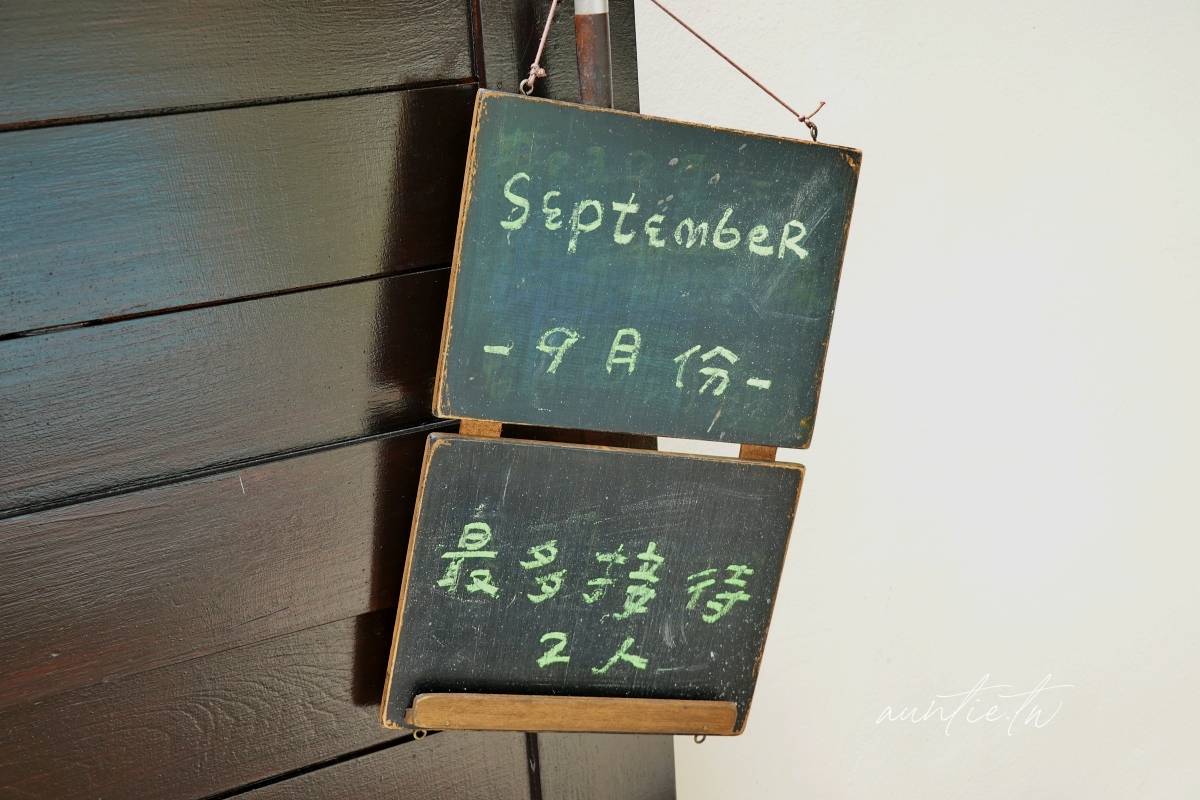 September
-9月份-
最多接待
2人
auntie.tw